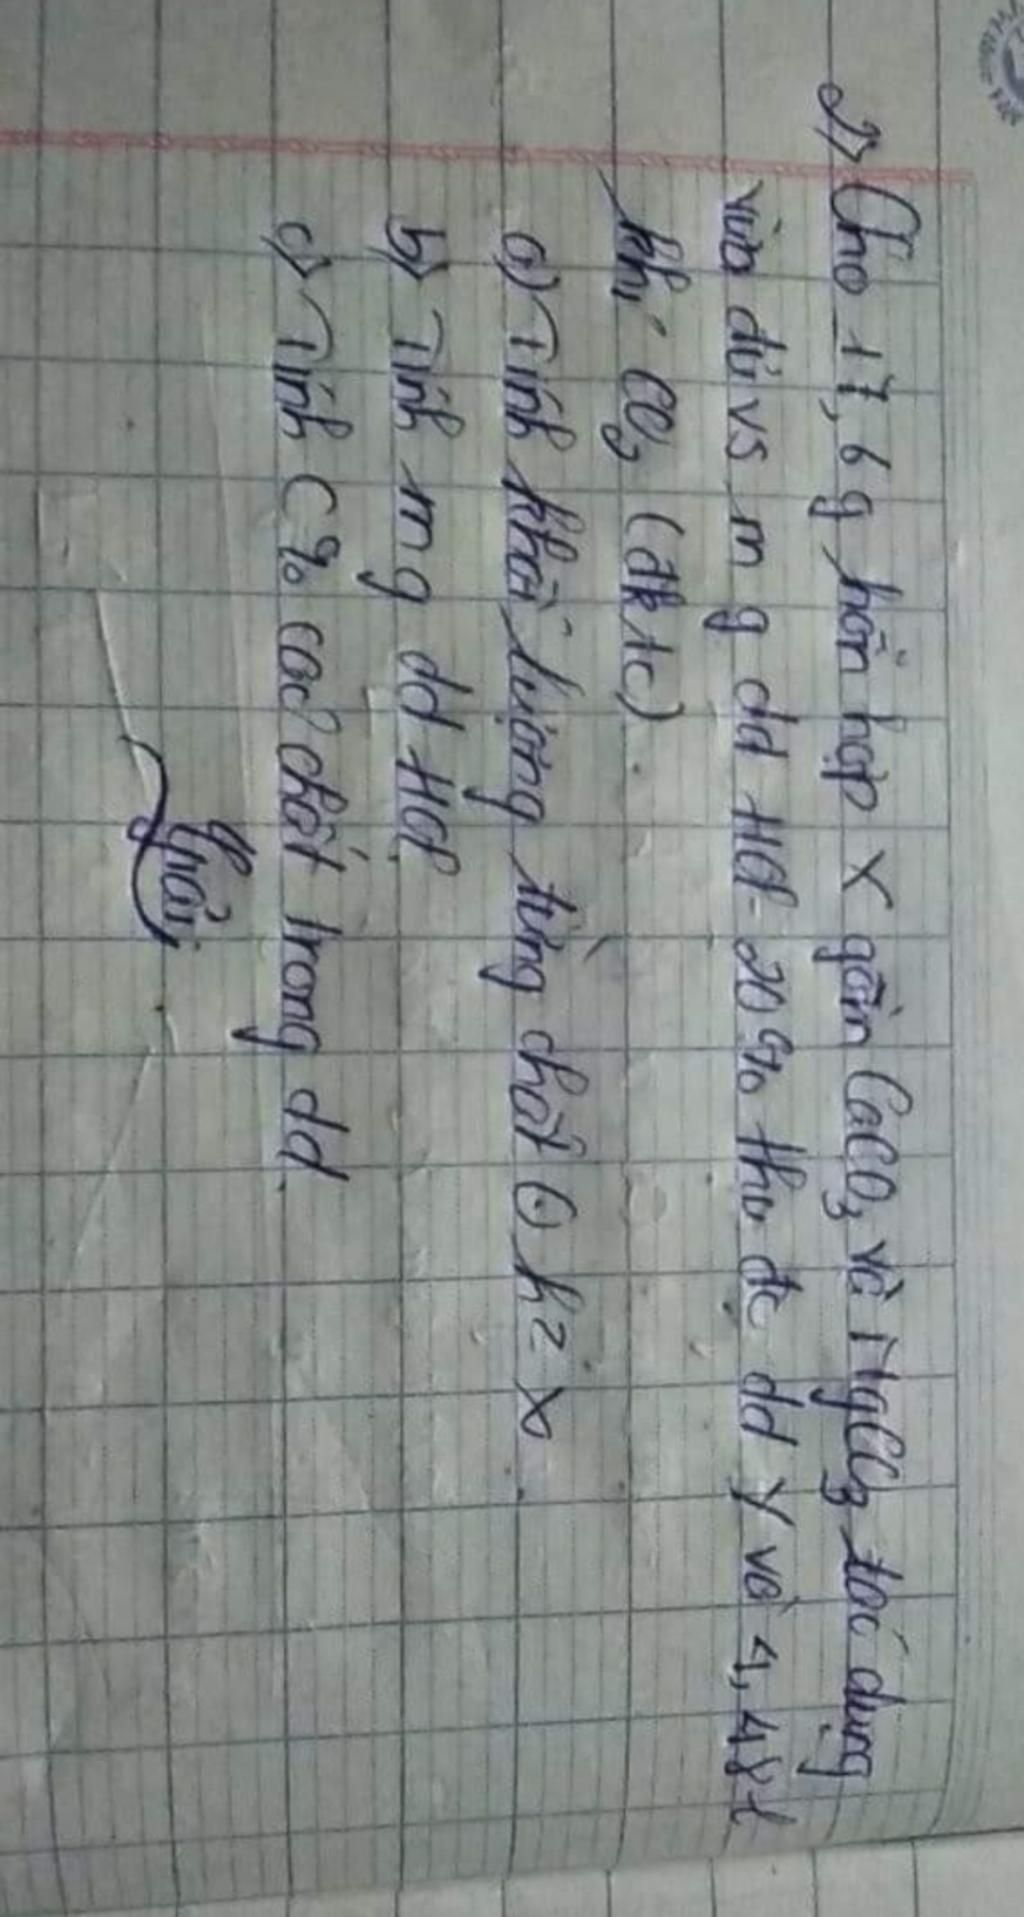 2) Cho 17,6 g hỗn hợp X gồm CaCO3 và MgCO3 tác dụng
vừa đủ vs m g dd HCl 20% thu đc dd Y và 4,48 l
khí CO2 (đktc).
a) Tính khối lượng từng chất ở h² X.
b) Tính m g dd HCl
c) Tính C% các chất trong dd.
Giải